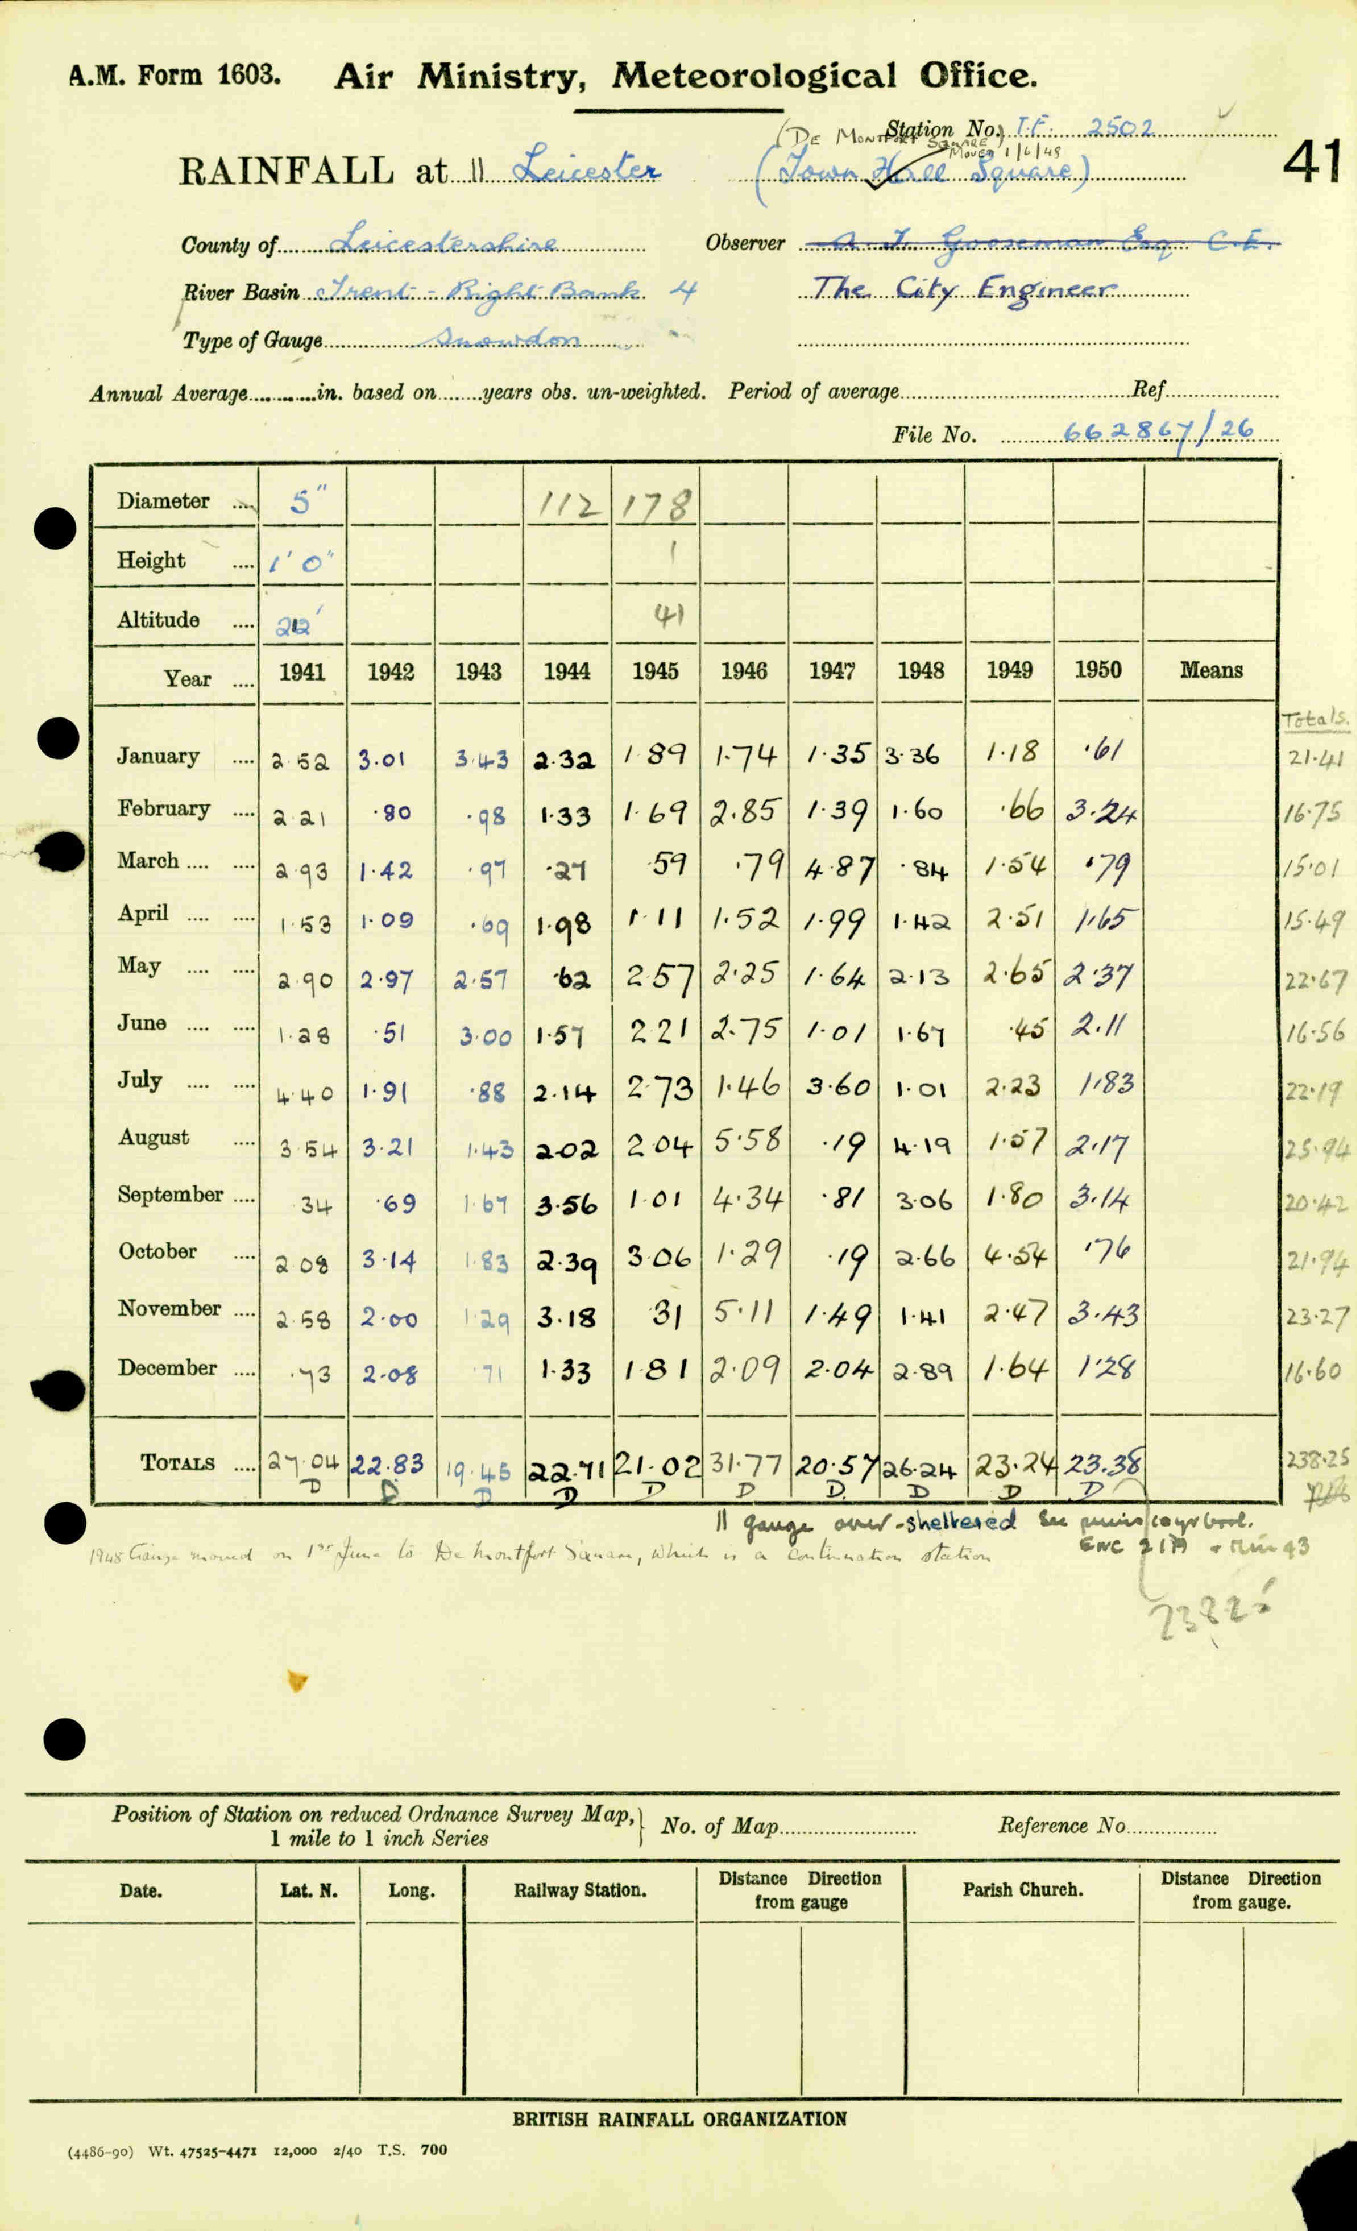 A.M. Form 1603. Air Ministry, Meteorological Office.
Station No. T.F. 2502
(DE MONTFORT SQUARE) MOVED 1/6/48
41
RAINFALL at || Leicester (Town Hall Square)
County of Leicestershire Observer A. T. Gooseman Esq C.E.
River Basin Trent - Right Bank 4 The City Engineer
Type of Gauge Snowdon
Annual Average in. based on years obs. un-weighted. Period of average Ref
File No. 662867/26
Diameter 5" 112 178
Height 1' 0" 1
Altitude 212' 41
Year 1941 1942 1943 1944 1945 1946 1947 1948 1949 1950 Means
Totals.
January 2.52 3.01 3.43 2.32 1.89 1.74 1.35 3.36 1.18 .61 21.41
February 2.21 .80 .98 1.33 1.69 2.85 1.39 1.60 .66 3.24 16.75
March 2.93 1.42 .97 .27 .59 .79 4.87 .84 1.54 .79 15.01
April 1.53 1.09 .69 1.98 1.11 1.52 1.99 1.42 2.51 1.65 15.49
May 2.90 2.97 2.57 .62 2.57 2.25 1.64 2.13 2.65 2.37 22.67
June 1.28 .51 3.00 1.57 2.21 2.75 1.01 1.67 .45 2.11 16.56
July 4.40 1.91 .88 2.14 2.73 1.46 3.60 1.01 2.23 1.83 22.19
August 3.54 3.21 1.43 2.02 2.04 5.58 .19 4.19 1.57 2.17 25.94
September .34 .69 1.67 3.56 1.01 4.34 .81 3.06 1.80 3.14 20.42
October 2.08 3.14 1.83 2.39 3.06 1.29 .19 2.66 4.54 .76 21.94
November 2.58 2.00 1.29 3.18 .31 5.11 1.49 1.41 2.47 3.43 23.27
December .73 2.08 .71 1.33 1.81 2.09 2.04 2.89 1.64 1.28 16.60
TOTALS 27.04 22.83 19.45 22.71 21.02 31.77 20.57 26.24 23.24 23.38 238.25
D D D D D D D D D D
|| gauge over-sheltered See
ENC 21A
1948 Gauge moved on 1st June to De Montfort Square, which is a continuation station
23825
Position of Station on reduced Ordnance Survey Map, 1 mile to 1 inch Series No. of Map Reference No.
Date. Lat. N. Long. Railway Station. Distance Direction from gauge Parish Church. Distance Direction from gauge.
BRITISH RAINFALL ORGANIZATION
(4486-90) Wt. 47525-4471 12,000 2/40 T.S. 700